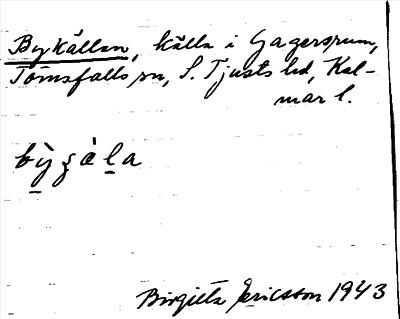 Bykällan, källa i Gagersrum,
Törnsfalls sn, S. Tjusts hd, Kal-
mar l.
Birgitta Ericsson 1943